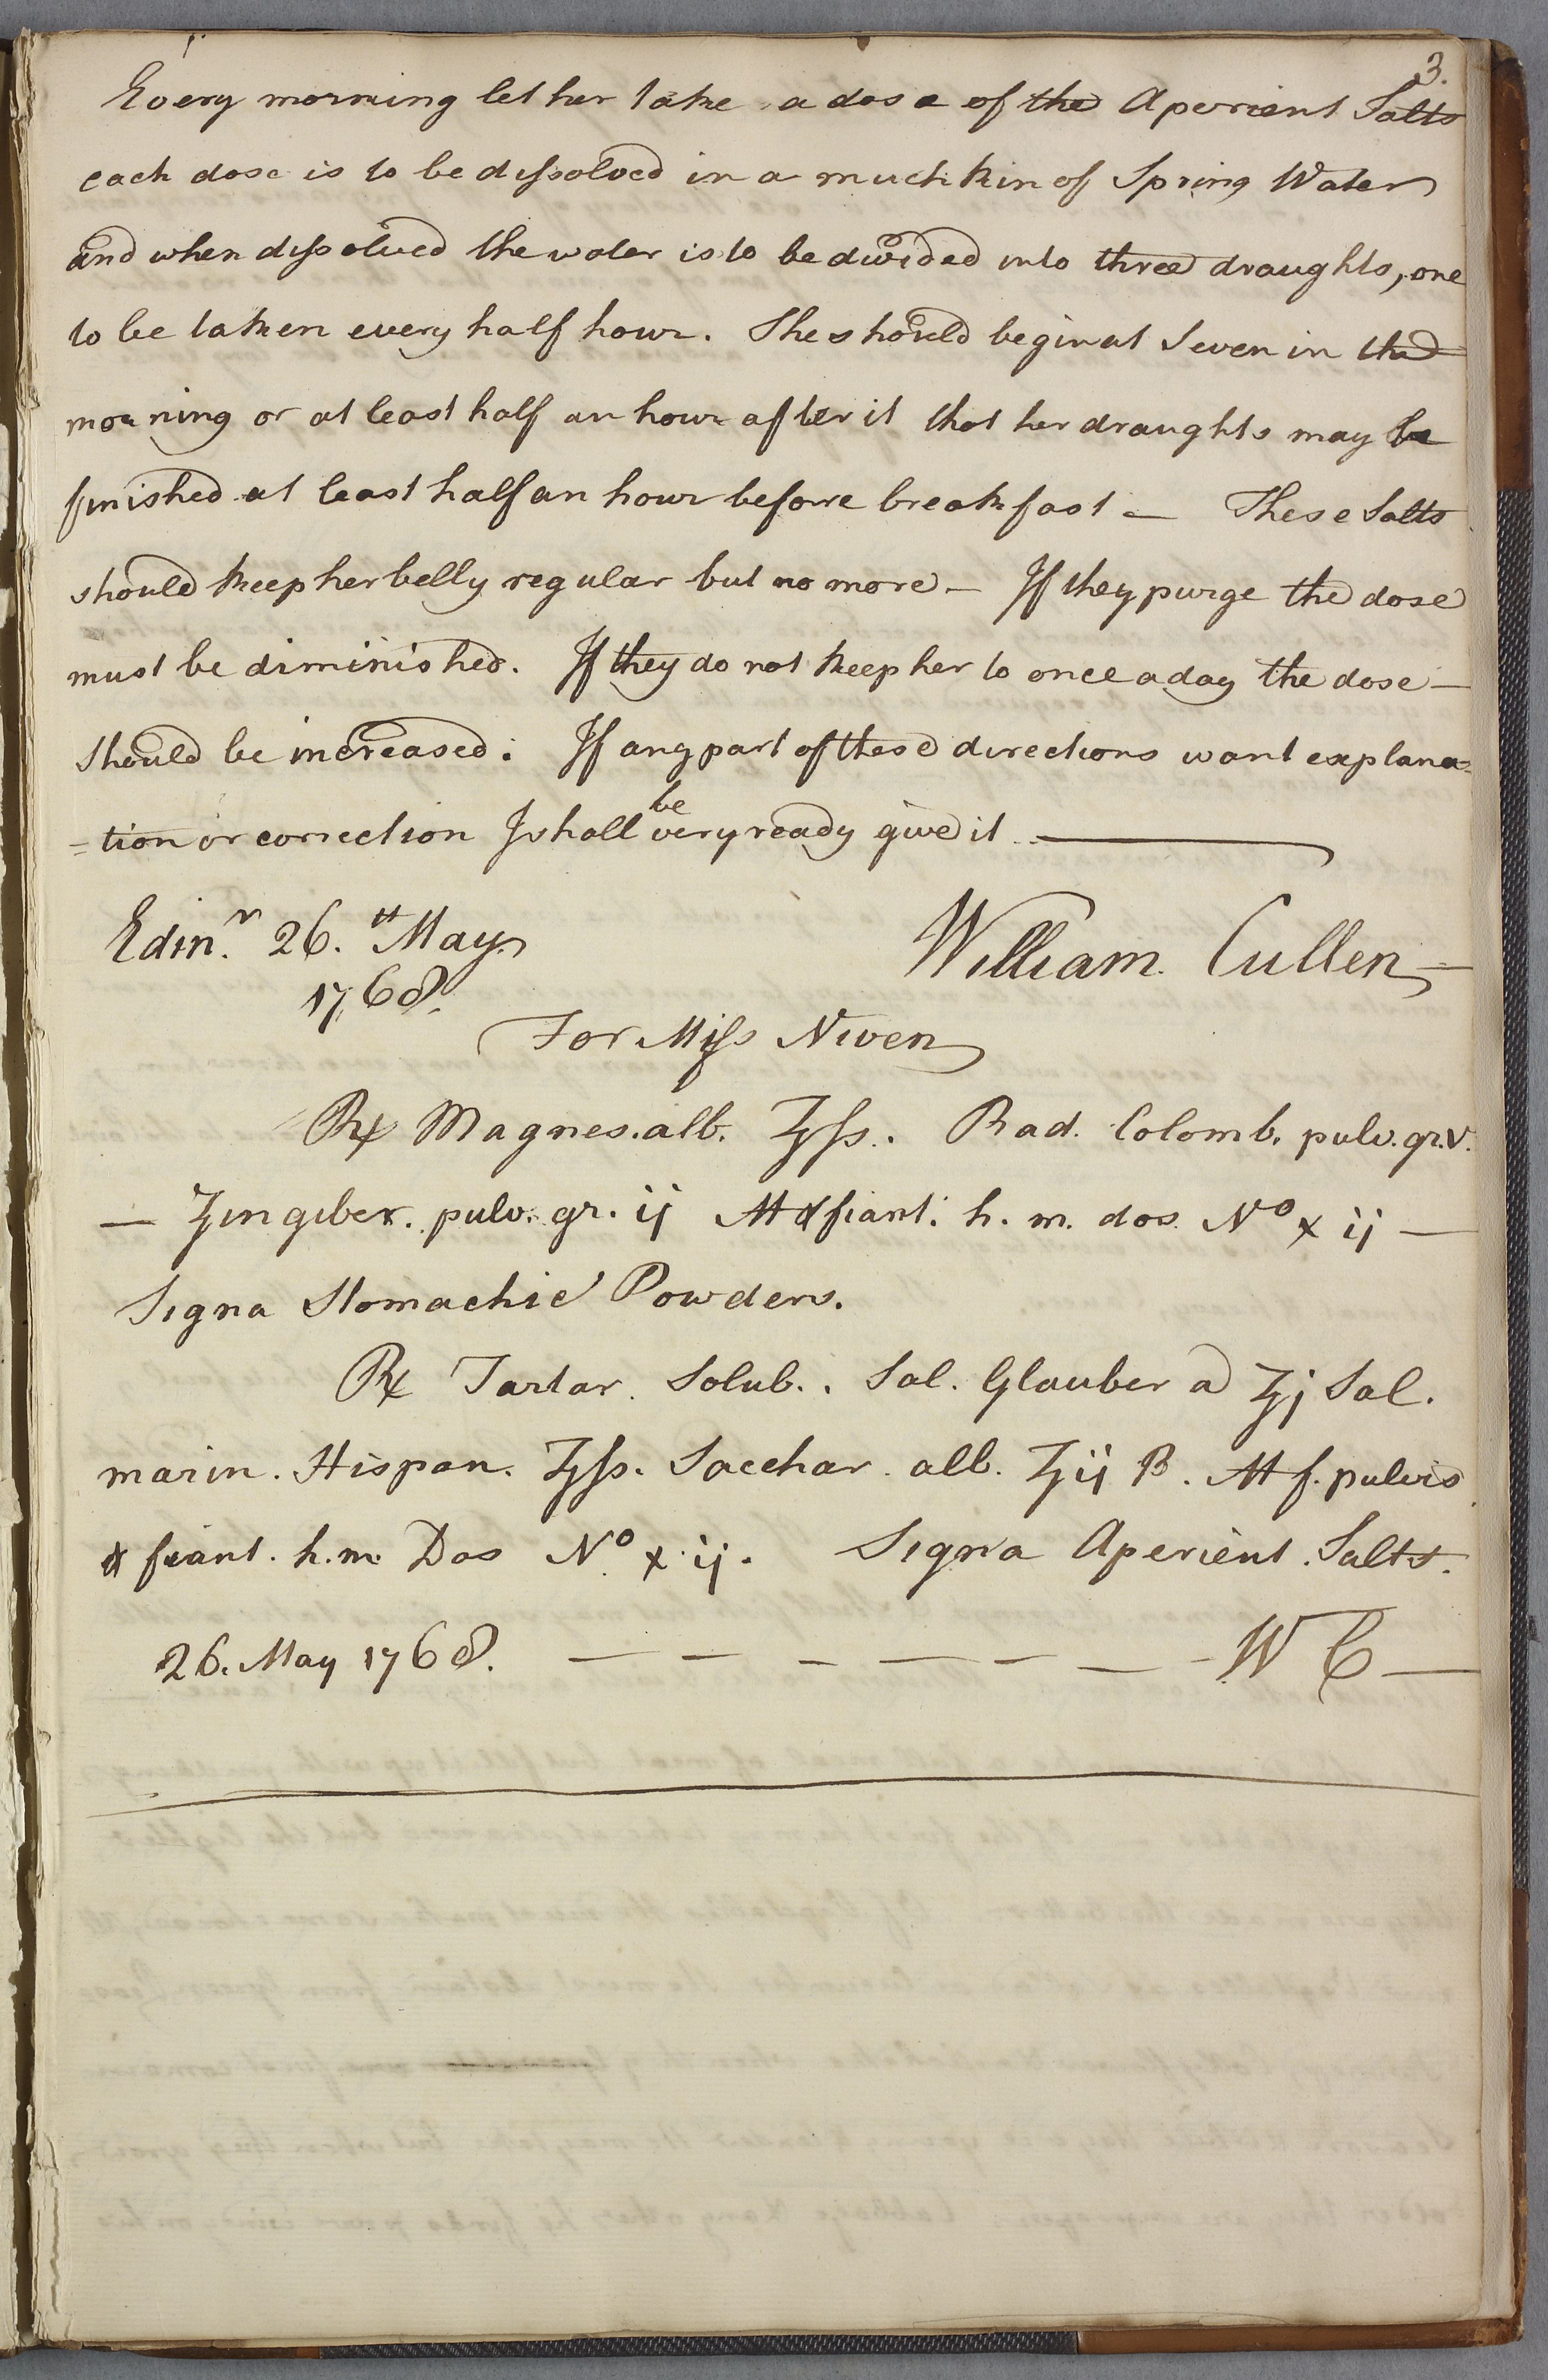 3.
Every morning let her take a dose of the Aperient Salts
each dose is to be dissolved in a mutchkin of Spring Water
and when dissolved the water is to be divided into three draughts, one
to be taken every half hour. She should begin at Seven in the
morning or at least half an hour after it that her draughts may be
finished at least half an hour before breakfast — These Salts
should keep her belly regular but no more — If they purge the dose
must be diminished. If they do not keep her to once a day the dose —
should be increased. If any part of these directions want explana=
=tion or correction I shall be very ready give it
Edin.r 26.tt May
1768.
William Cullen —
For Miss Niven
℞ Magnes. alb. ʒſs. Rad. Colomb. pulv. gr. v.
— Zingiber. pulv. gr. ij M & fiant. h. m. dos. No xij —
Signa Stomachic Powders.
℞ Tartar. Solub. . Sal. Glauber a ℥j Sal.
marin. Hispan. ℥ſs. Sacchar. alb. ʒij B. M f. pulvis
& fiant. h. m. Dos No xij. Signa Aperient. Salts.
26. May 1768. — — — — — — - W C —